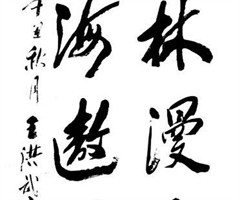 林漫
海遨
秋月王洪武